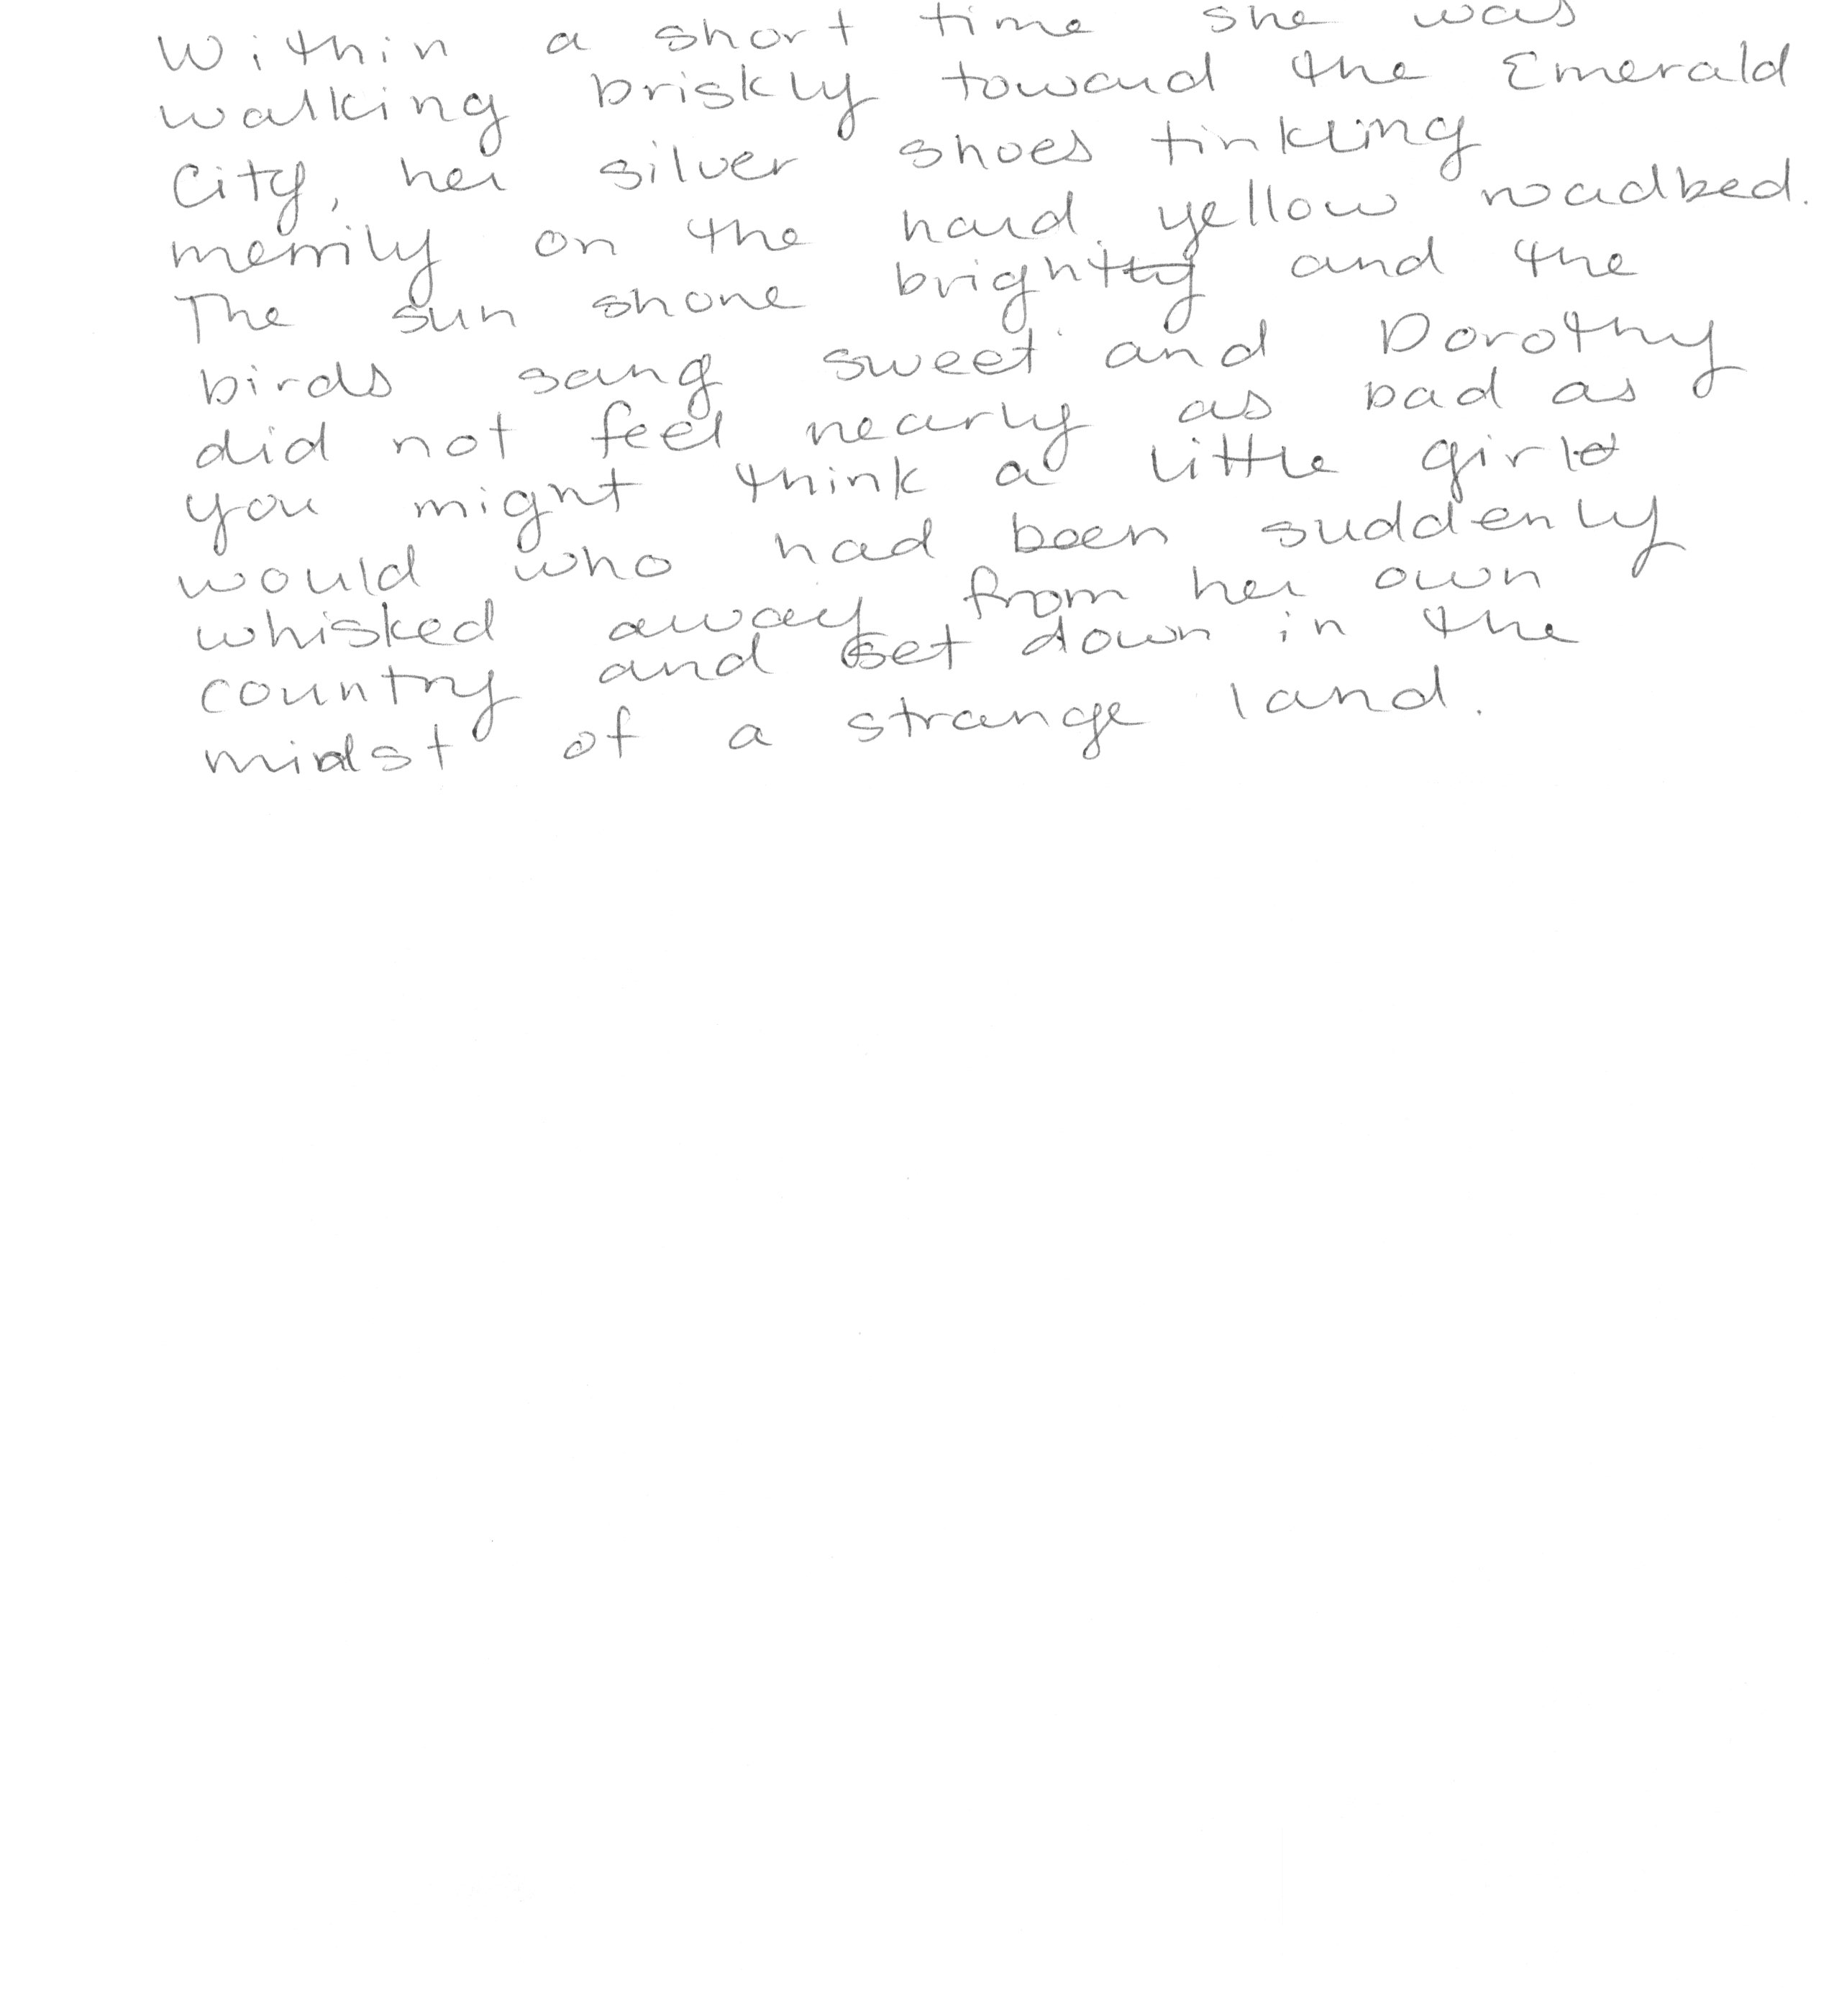 Within a short time she was
walking briskly toward the Emerald
City, her silver shoes tinkling
merrily on the hard yellow roadbed.
The sun shone bright and the
birds sang sweet and Dorothy
did not feel nearly as bad as
you might think a little girl
would who had been suddenly
whisked away from her own
country and set down in the
midst of a strange land.